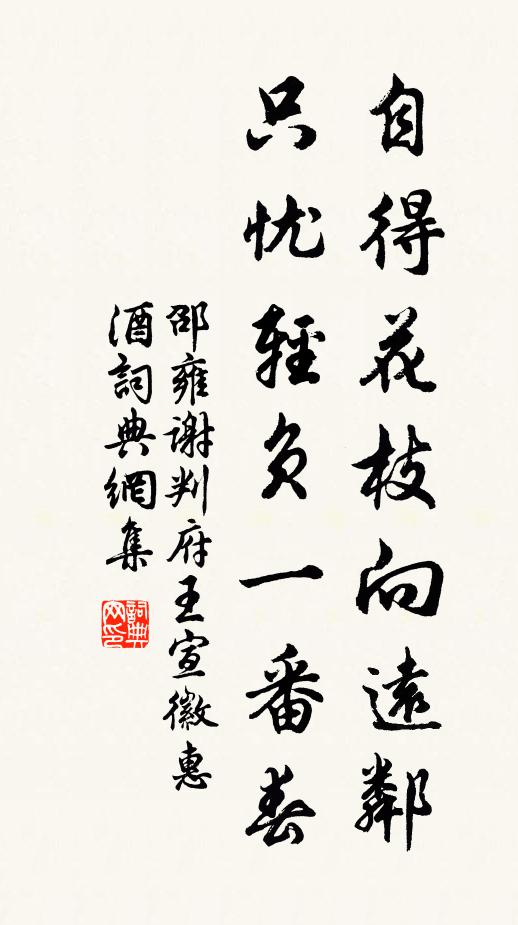 自得花枝向遠鄰
只忧輕負一番春
邵雍謝判府王宣徽惠
酒詞典網集
詞典
网印